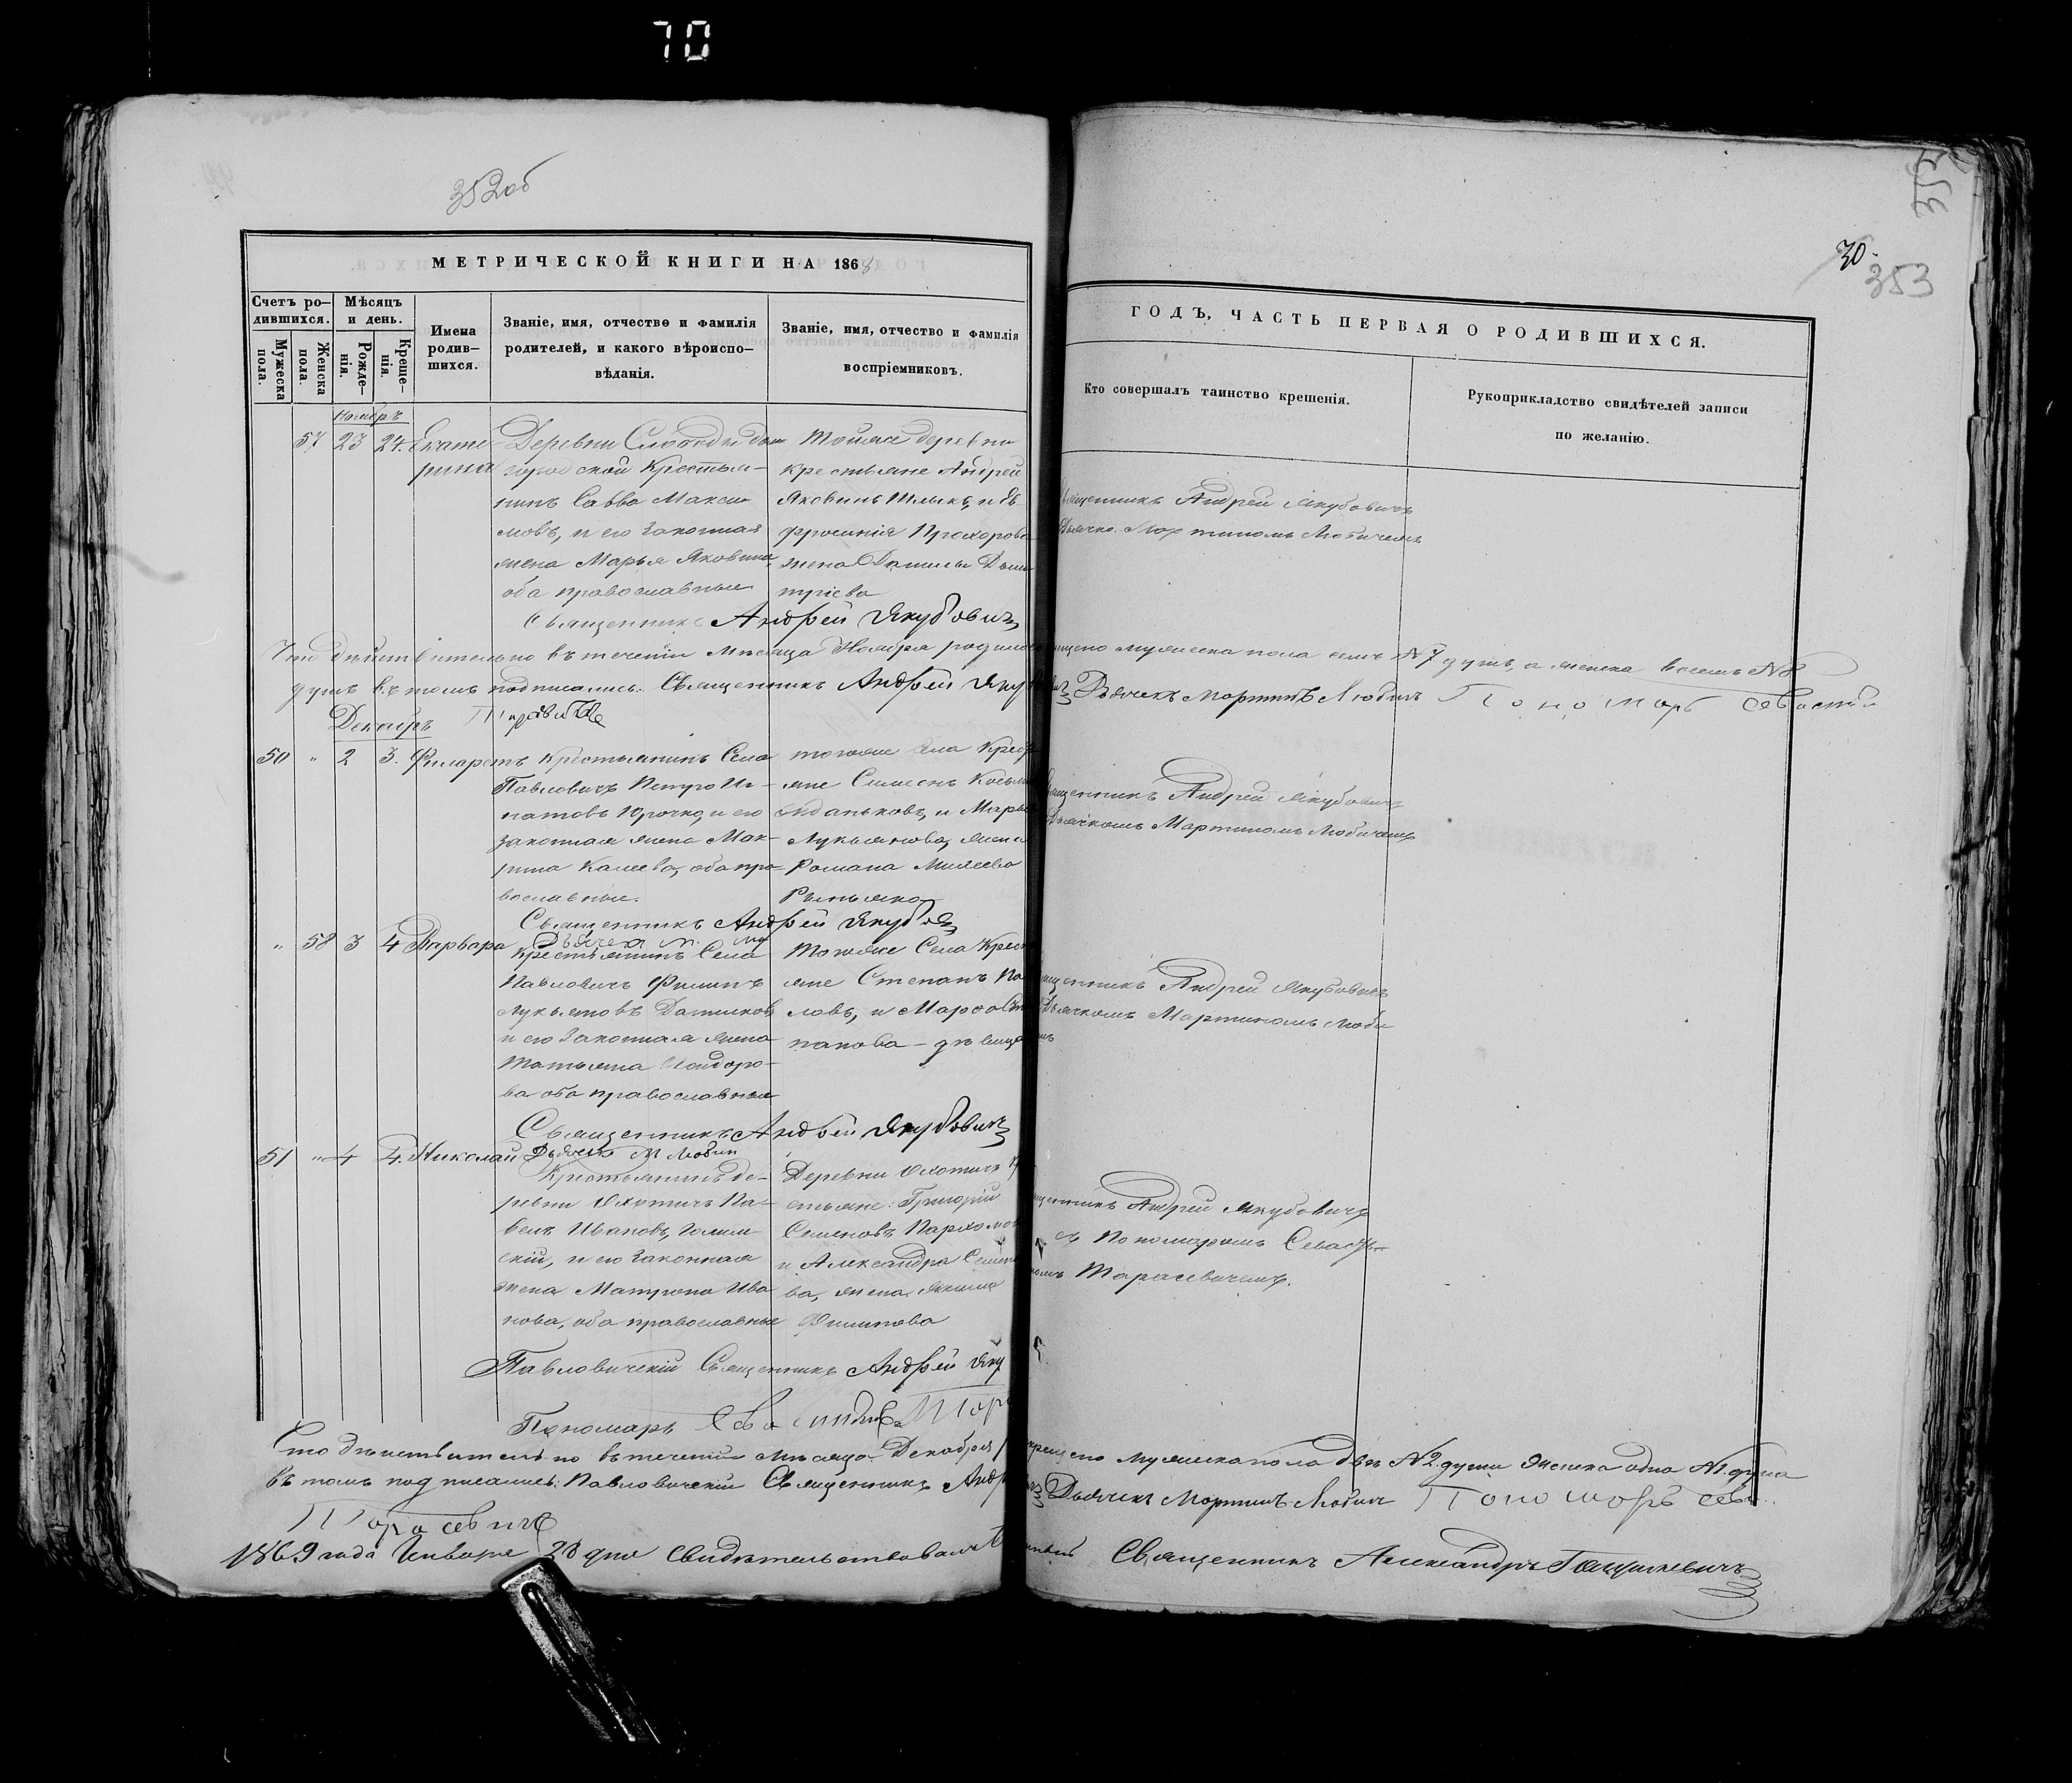 70
352 об
353
30.
353
МЕТРИЧЕСКОЙ КНИГИ НА 1868
ГОДЪ, ЧАСТЬ ПЕРВАЯ О РОДИВШИХСЯ.
Счетъ родившихся.
Мужеска пола.
Женска пола.
Мѣсяцъ и день.
Рожденія.
Крещенія.
Имена родившихся.
Званіе, имя, отчество и фамилія
родителей, и какого вѣроиспо-
вѣданія.
Званіе, имя, отчество и фамилія
воспріемниковъ.
Кто совершалъ таинство крещенія.
Рукоприкладство свидѣтелей записи
по желанію.
Ноябрь
57 23 24. Екате-
рина
Деревни Слободы
Крестья-
нинъ Савва Макси-
мовъ, и его законная
жена Марья Яковина
оба православные
Тойже деревни
крестьяне Андрей
Яковинъ и Ев
фросинія Прохорова
жена Данилы Дми
тріева
Священникъ Андрей Якубовичъ
Дьячко. Мартиномъ Любичемъ
Священникъ Андрей Якубовичъ
Что дѣйствительно въ теченіи мѣсяца Ноября мужеска пола семь №7 душъ, а женска восемь №8
душъ въ томъ подписались: Священникъ Андрей Дьячекъ Мартинъ Любичъ Пономарь
Декабрь
50 " 2 3. Филаретъ
Крестьянинъ Села
Павловичъ Петро Иг-
натовъ Крочко, и его
законная жена Мак-
рина оба пра-
вославные.
тогоже Села Крестья
яне Симеонъ Козьми
и Марья
Лукьянова, жена
Романа
Священникъ Андрей Якубовичъ
Дьячкомъ Мартиномъ Любичемъ
Священникъ Андрей
" 58 3 4 Варвара
Крестьянинъ Села
Павловичъ Филипъ
Лукьяновъ
и его Законная жена
Татьяна Исидоро-
ва оба православные
Тогоже Села Крест
яне Степанъ Па
ловъ, и Марфа Сте
панова - дѣвица
Священникъ Андрей Якубовичъ
Дьячкомъ Мартиномъ Люби
Священникъ Андрей Якубовичъ
Дьячекъ М Любич
51 " 4 4. Николай
Крестьянинъ де-
ревни Охотичъ Па-
велъ Ивановъ,
скій, и его Законная
жена Матрона Ива
нова, оба православные
Деревни Охотичъ Кр
естьяне: Григорій
Семеновъ Пархомов
и Александра Семено
ва, жена
Филипова
Священникъ Андрей Якубовичъ
съ Пономаремъ Севасть
номъ Тарасевичемъ.
Павловичскій Священникъ Андрей Яку
Пономарь
Что дѣйствительно въ теченіи мѣсяца Декабря крещено мужеска пола двѣ №2 души женска одна №1 душа
въ томъ подписались: Павловичскій Священникъ Андр Дьячекъ Мартинъ Любич Пономарь Сев
Тарасевичъ
1869 года Генваря 28 дня Свидѣтельствовалъ Священникъ Александръ